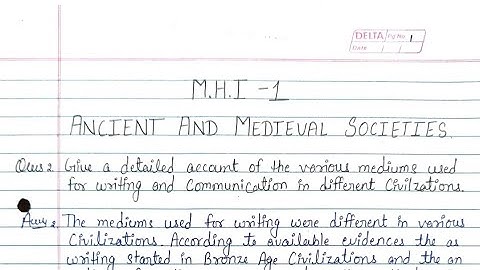 DELTA Pg No. 1
Date / /
M.H.I -1
ANCIENT AND MEDIEVAL SOCIETIES.
Ques 2. Give a detailed account of the various mediums used
for writing and Communication in different Civilzations.
Answ 2. The mediums used for writing were different in various
Civilizations. According to available evidences the as
writing started in Bronze Age Civilizations and the an